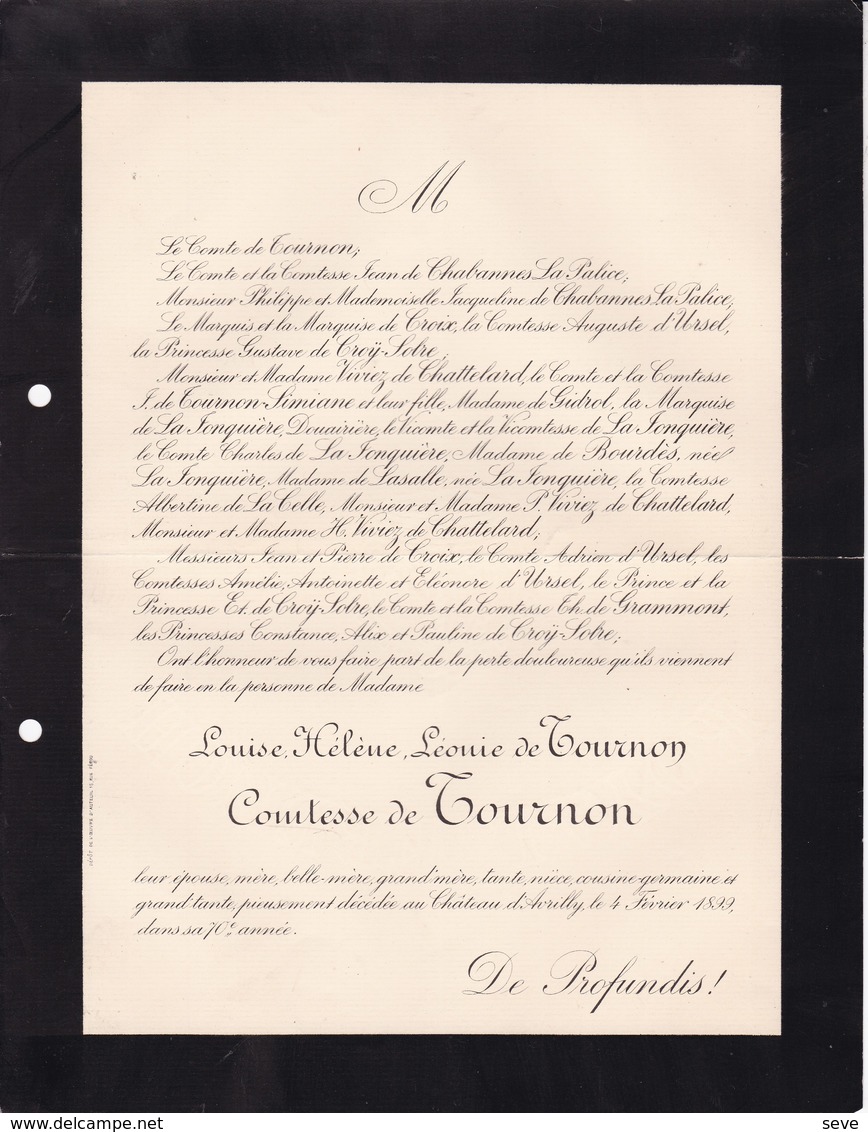 M
Le Comte de Tournon;
Le Comte et la Comtesse Jean de Chabannes La Palice;
Monsieur Philippe et Mademoiselle Jacqueline de Chabannes La Palice;
Le Marquis et la Marquise de Croix, la Comtesse Auguste d'Ursel,
la Princesse Gustave de Croÿ-Solre;
Monsieur et Madame Viviez de Chattelard, le Comte et la Comtesse
J. de Tournon-Simiane et leur fille, Madame de Gidrol, la Marquise
de La Jonquière, Douairière, le Vicomte et la Vicomtesse de La Jonquière,
le Comte Charles de La Jonquière, Madame de Bourdès, née
La Jonquière, Madame de Lasalle, née La Jonquière, la Comtesse
Albertine de La Celle, Monsieur et Madame P. Viviez de Chattelard,
Monsieur et Madame H. Viviez de Chattelard;
Messieurs Jean et Pierre de Croix, le Comte Adrien d'Ursel, les
Comtesses Amélie, Antoinette et Eléonore d'Ursel, le Prince et la
Princesse Et. de Croÿ-Solre, le Comte et la Comtesse Th. de Grammont,
les Princesses Constance, Alix et Pauline de Croÿ-Solre;
Ont l'honneur de vous faire part de la perte douloureuse qu'ils viennent
de faire en la personne de Madame
Louise, Hélène, Léonie de Tournon
Comtesse de Tournon
leur épouse, mère, belle-mère, grand'mère, tante, nièce, cousine-germaine et
grand'tante, pieusement décédée au Château d'Avrilly, le 4 Février 1899,
dans sa 70e année.
De Profundis!
DÉPÔT DE L'ŒUVRE D'AUTEUIL 15, RUE FÉROU
seve